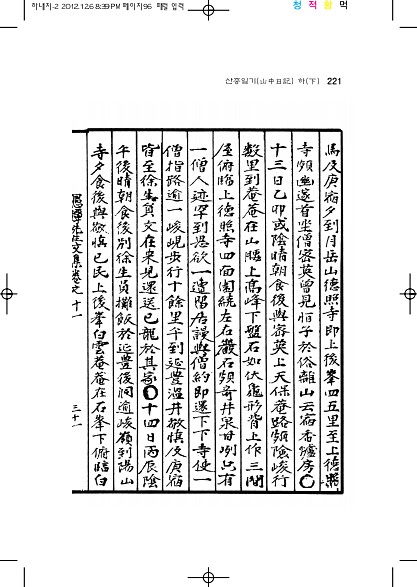 하네지-2 2012.12.6 8:39 PM 페이지96
청 적 황 먹
산중일기(山中日記) 하(下) 221
馬及庚宿夕到月岳山德照寺即上後峯四五里至上德照
寺頗幽邃首坐僧密英曾見恒子於俗離山云宿香爐房○
十三日乙卯或陰晴朝食後與密英上天保庵路頗險峻行
數里到庵庵在山腰上高峰下盤石如伏龜形背上作三間
屋俯臨上德照寺四面圍繞左右巖石頗奇井泉甘冽只有
一僧人迹罕到思欲一遭留居謾與僧約即還下下寺使一
僧指路逾一峻峴步行十餘里午到延豊溫井敬慎及庚宿
皆至徐生貟文在來見還送已龍於其家○十四日丙辰陰
午後晴朝食後別徐生員攤飯於延豊後洞逾峻嶺到陽山
寺夕食後與敬慎已民上後峯白雲庵庵在石峯下俯臨白
愚潭先生文集卷之十一 三十一